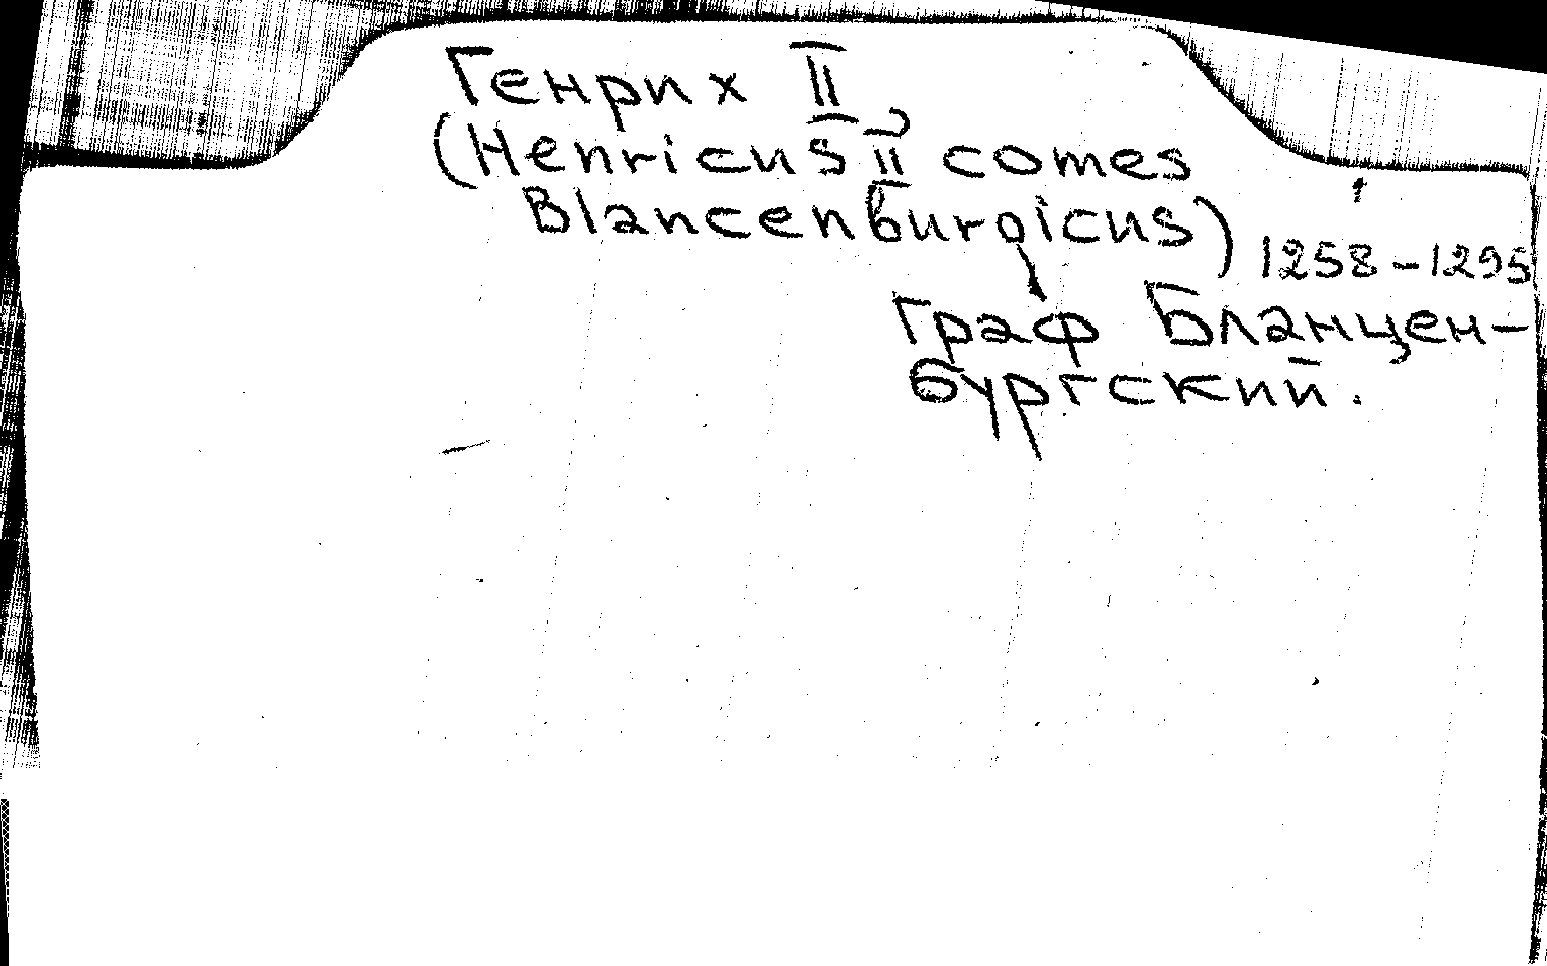 Генрих II
(Henricus II comes
Blancenburgicus) 1258-1295
Граф Бланцен-
бургский.